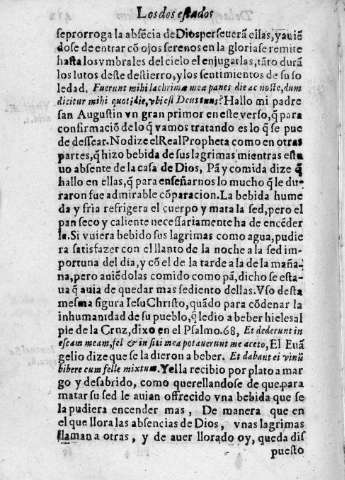 Los dos estados
se prorroga la absẽcia de Dios perseuerã ellas, y auiẽ
dose de entrar cõ ojos serenos en la gloria se remite
hasta los vmbrales del cielo el enjugarlas, tãto durã
los lutos deste destierro, y los sentimientos de su so
ledad. Fuerunt mihi lachrimæ meæ panes die ac nocte, dum
dicitur mihi quotidie, vbi est Deus tuus? Hallo mi padre
san Augustin vn gran primor en este verso, q̃ para
confirmaciõ de lo q̃ vamos tratando es lo q̃ se pue
de dessear. No dize el Real Propheta como en otras
partes, q̃ hizo bebida de sus lagrimas mientras estu
uo absente de la casa de Dios, Pã y comida dize q̃
hallo en ellas, q̃ para enseñarnos lo mucho q̃ le du
raron fue admirable cõparacion. La bebida hume
da y fria refrigera el cuerpo y mata la sed, pero el
pan seco y caliente necessariamente ha de encẽder
la. Si vuiera bebido sus lagrimas como agua, pudie
ra satisfazer con el llanto de la noche a la sed im-
portuna del dia, y cõ el de la tarde a la de la maña-
na, pero auiẽdolas comido como pã, dicho se esta-
ua q̃ auia de quedar mas sediento dellas. Vso desta
mesma figura Iesu Christo, quãdo para cõdenar la
inhumanidad de su pueblo, q̃ le dio a beber hieles al
pie de la Cruz, dixo en el Psalmo. 68, Et dederunt in
escam meam, fel & in siti mea potauerunt me aceto, El Euã
gelio dize que se la dieron a beber. Et dabant ei vinũ
bibere cum felle mixtum. Y el la recibio por plato amar
go y desabrido, como querellandose de que para
matar su sed le auian offrecido vna bebida que se
la pudiera encender mas, De manera que en
el que llora las absencias de Dios, vnas lagrimas
llaman a otras, y de auer llorado oy, queda dis
puesto